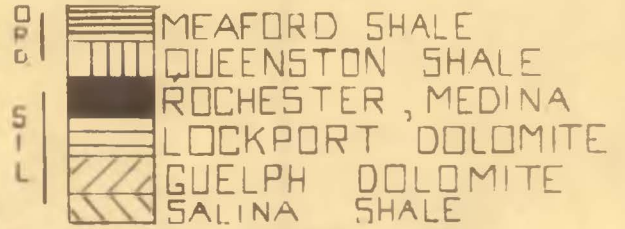 ORD.
MEAFORD SHALE
QUEENSTON SHALE
SIL
ROCHESTER, MEDINA
LOCKPORT DOLOMITE
GUELPH DOLOMITE
SALINA SHALE